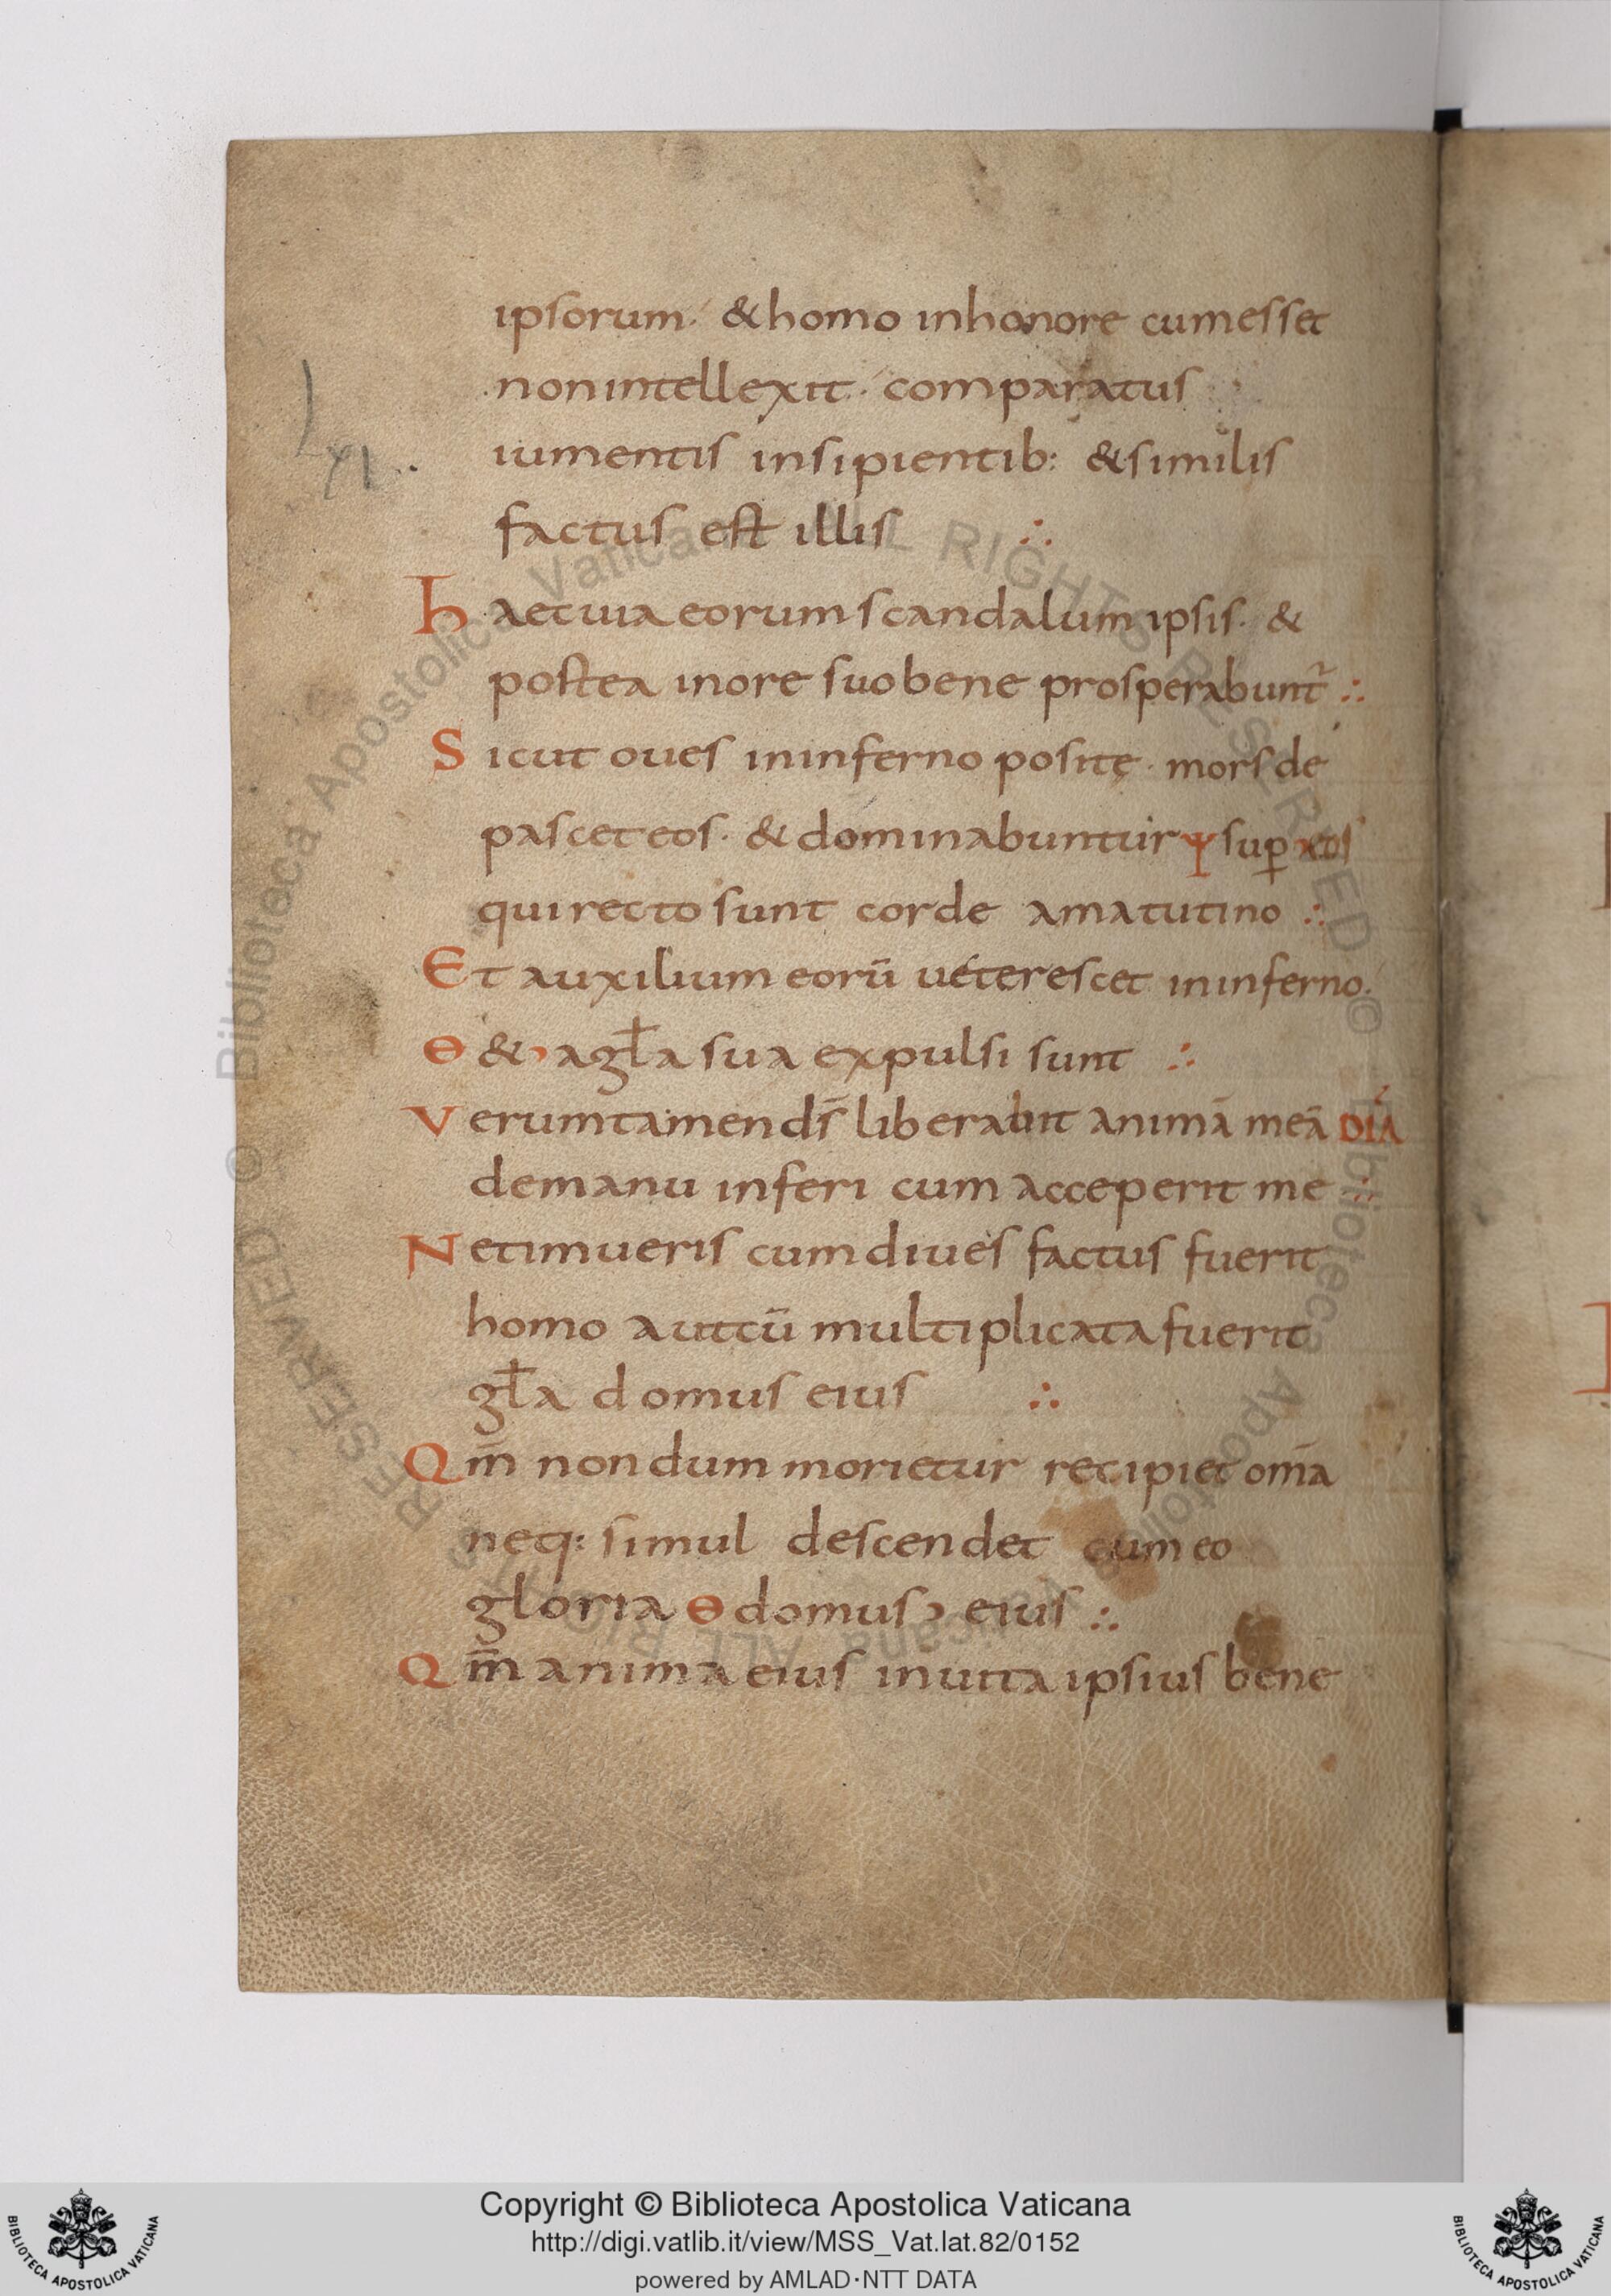 ipsorum· & homo inhonore cumesset
nonintellexit· comparatus
iumentis insipientib: & similis
Lxi
factus est illis ∴
Haecuia eorum scandalum ipsis· &
postea inore suo bene prosperabunt̃ ∴
Sicut oues ininferno positę· mors de
pascet eos· & dominabuntur ψ sup̱ eos
qui recto sunt corde amatutino ∴
Et auxilium eorū ueterescet ininferno·
ɵ & agl̄a sua expulsi sunt ∴
Verumtamen ds̄ liberabit animā meā DIA
demanu inferi cum acceperit me ∴
Netimueris cum diues factus fuerit
homo autcū multiplicata fuerit
gl̄a domus eius ∴
Qm̄ nondum morietur recipiet om̄a
neq: simul descendet cum eo
gloria ɵ domus eius ∴
Qm̄ anima eius inuita ipsius bene
Copyright © Biblioteca Apostolica Vaticana
http://digi.vatlib.it/view/MSS_Vat.lat.82/0152
powered by AMLAD·NTT DATA
BIBLIOTECA APOSTOLICA VATICANA
BIBLIOTECA APOSTOLICA VATICANA
© Biblioteca Apostolica Vaticana ALL RIGHTS RESERVED © Biblioteca Apostolica Vaticana ALL RIGHTS RESERVED